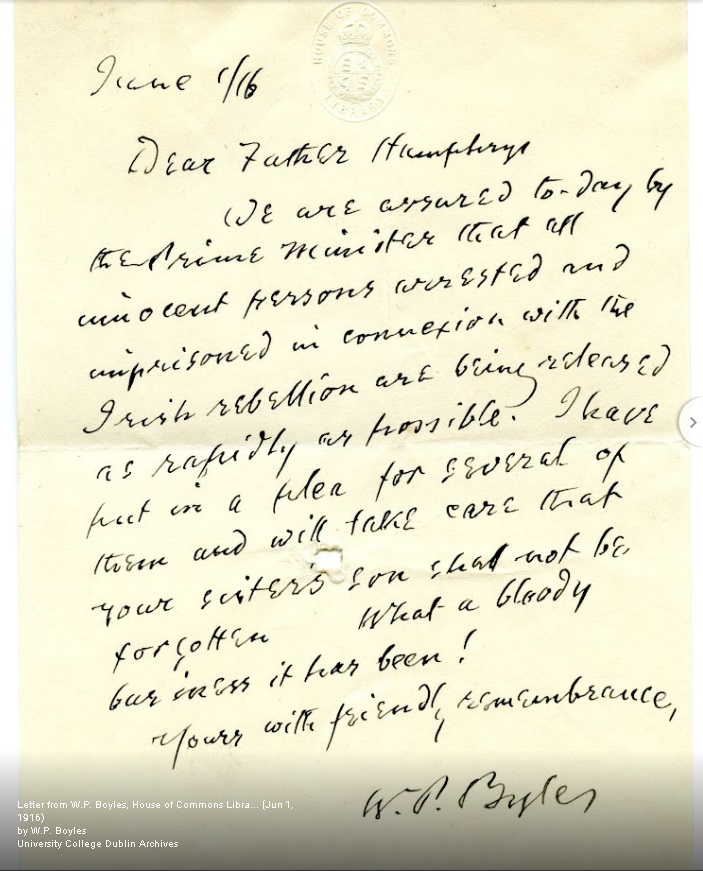 HOUSE OF COMMONS
LIBRARY
June 1/16
Dear Father Humphrys
We are assured to-day by
the Prime Minister that all
innocent persons arrested and
imprisoned in connexion with the
Irish rebellion are being released
as rapidly as possible. I have
put in a plea for several of
them and will take care that
your sister's son shall not be
forgotten What a bloody
business it has been!
Yours with friendly remembrance,
W. P. Byles
Letter from W.P. Boyles, House of Commons Libra... (Jun 1,
1916)
by W.P. Boyles
University College Dublin Archives